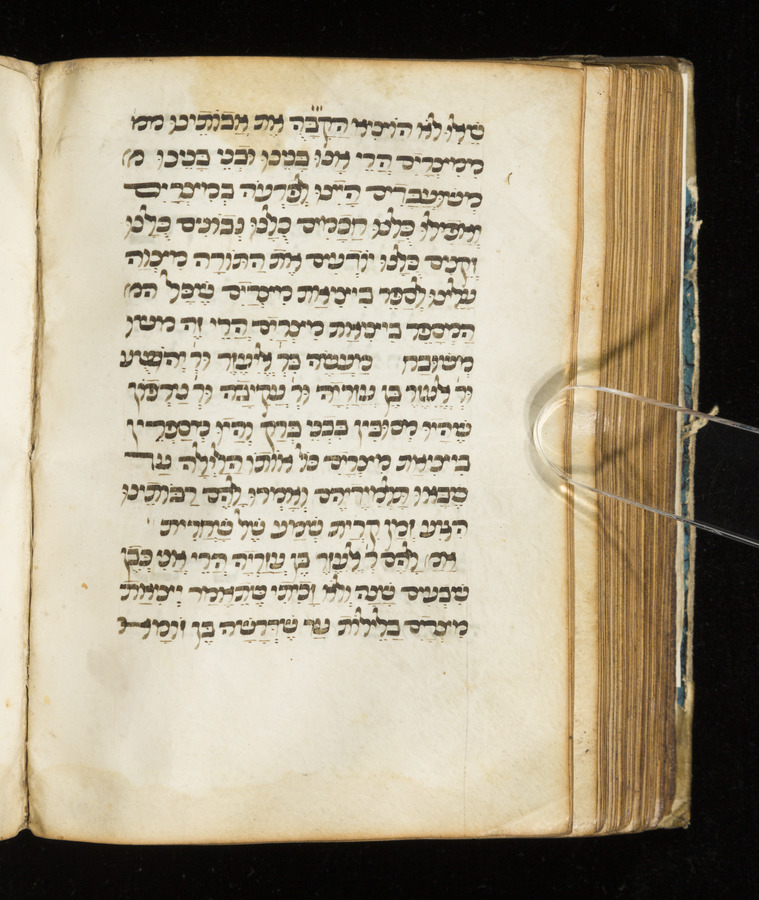 שֶׁאִלּוּ לֹא הוֹצִיא הַקָּבָּ֗ה֗ אֶת אֲבוֹתֵינוּ ממ
מִמִּצְרַיִם הֲרֵי אָנוּ בָּנֵינוּ וּבְנֵי בָנֵינוּ מ
מְשׁוּעְבָּדִים הָיִינוּ לְפַרְעֹה בְּמִצְרַיִם
וַאֲפִילוּ כֻּלָּנוּ חֲכָמִים כֻּלָּנוּ נְבוֹנִים כֻּלָּנוּ
זְקֵנִים כֻּלָּנוּ יוֹדְעִים אֶת הַתּוֹרָה מִצְוָה
עָלֵינוּ לְסַפֵּר בִּיצִיאַת מִצְרַיִם שֶׁכָּל המ
הַמְסַפֵּר בִּיצִיאַת מִצְרַיִם הֲרֵי זֶה משו
מְשׁוּבָּח מַעֲשֶׂה בְּר אֱלִיעֶזֶר וְר יְהוֹשֻׁעַ
וְר אֶלְעָזָר בֶּן עֲזַרְיָה וְר עֲקִיבָה וְר טַרְפוֹן
שֶׁהָיוּ מְסוּבִּין בִּבְנֵי בְרַק וְהָיוּ מְסַפְּרִין
בִּיצִיאַת מִצְרַיִם כֹּל אוֹתוֹ הַלַּיְלָה עַד
שֶׁבָּאוּ תַלְמִידֵיהֶם וְאָמְרוּ לָהֶם רַבּוֹתֵינוּ
הִגִּיעַ זְמַן קְרִיַּת שְׁמַע שֶׁל שַׁחֲרִית
אָמ לָהֶם ר לְעָזָר בֶּן עֲזַרְיָה הֲרֵי אֲנִי כְּבֶן
שִׁבְעִים שָׁנָה וְלֹא זָכִיתִי שֶׁתֵּאָמֵר יְצִיאַת
מִצְרַיִם בַּלֵּילוֹת עַד שֶׁדְּרָשָׁהּ בֶּן זוֹמָא